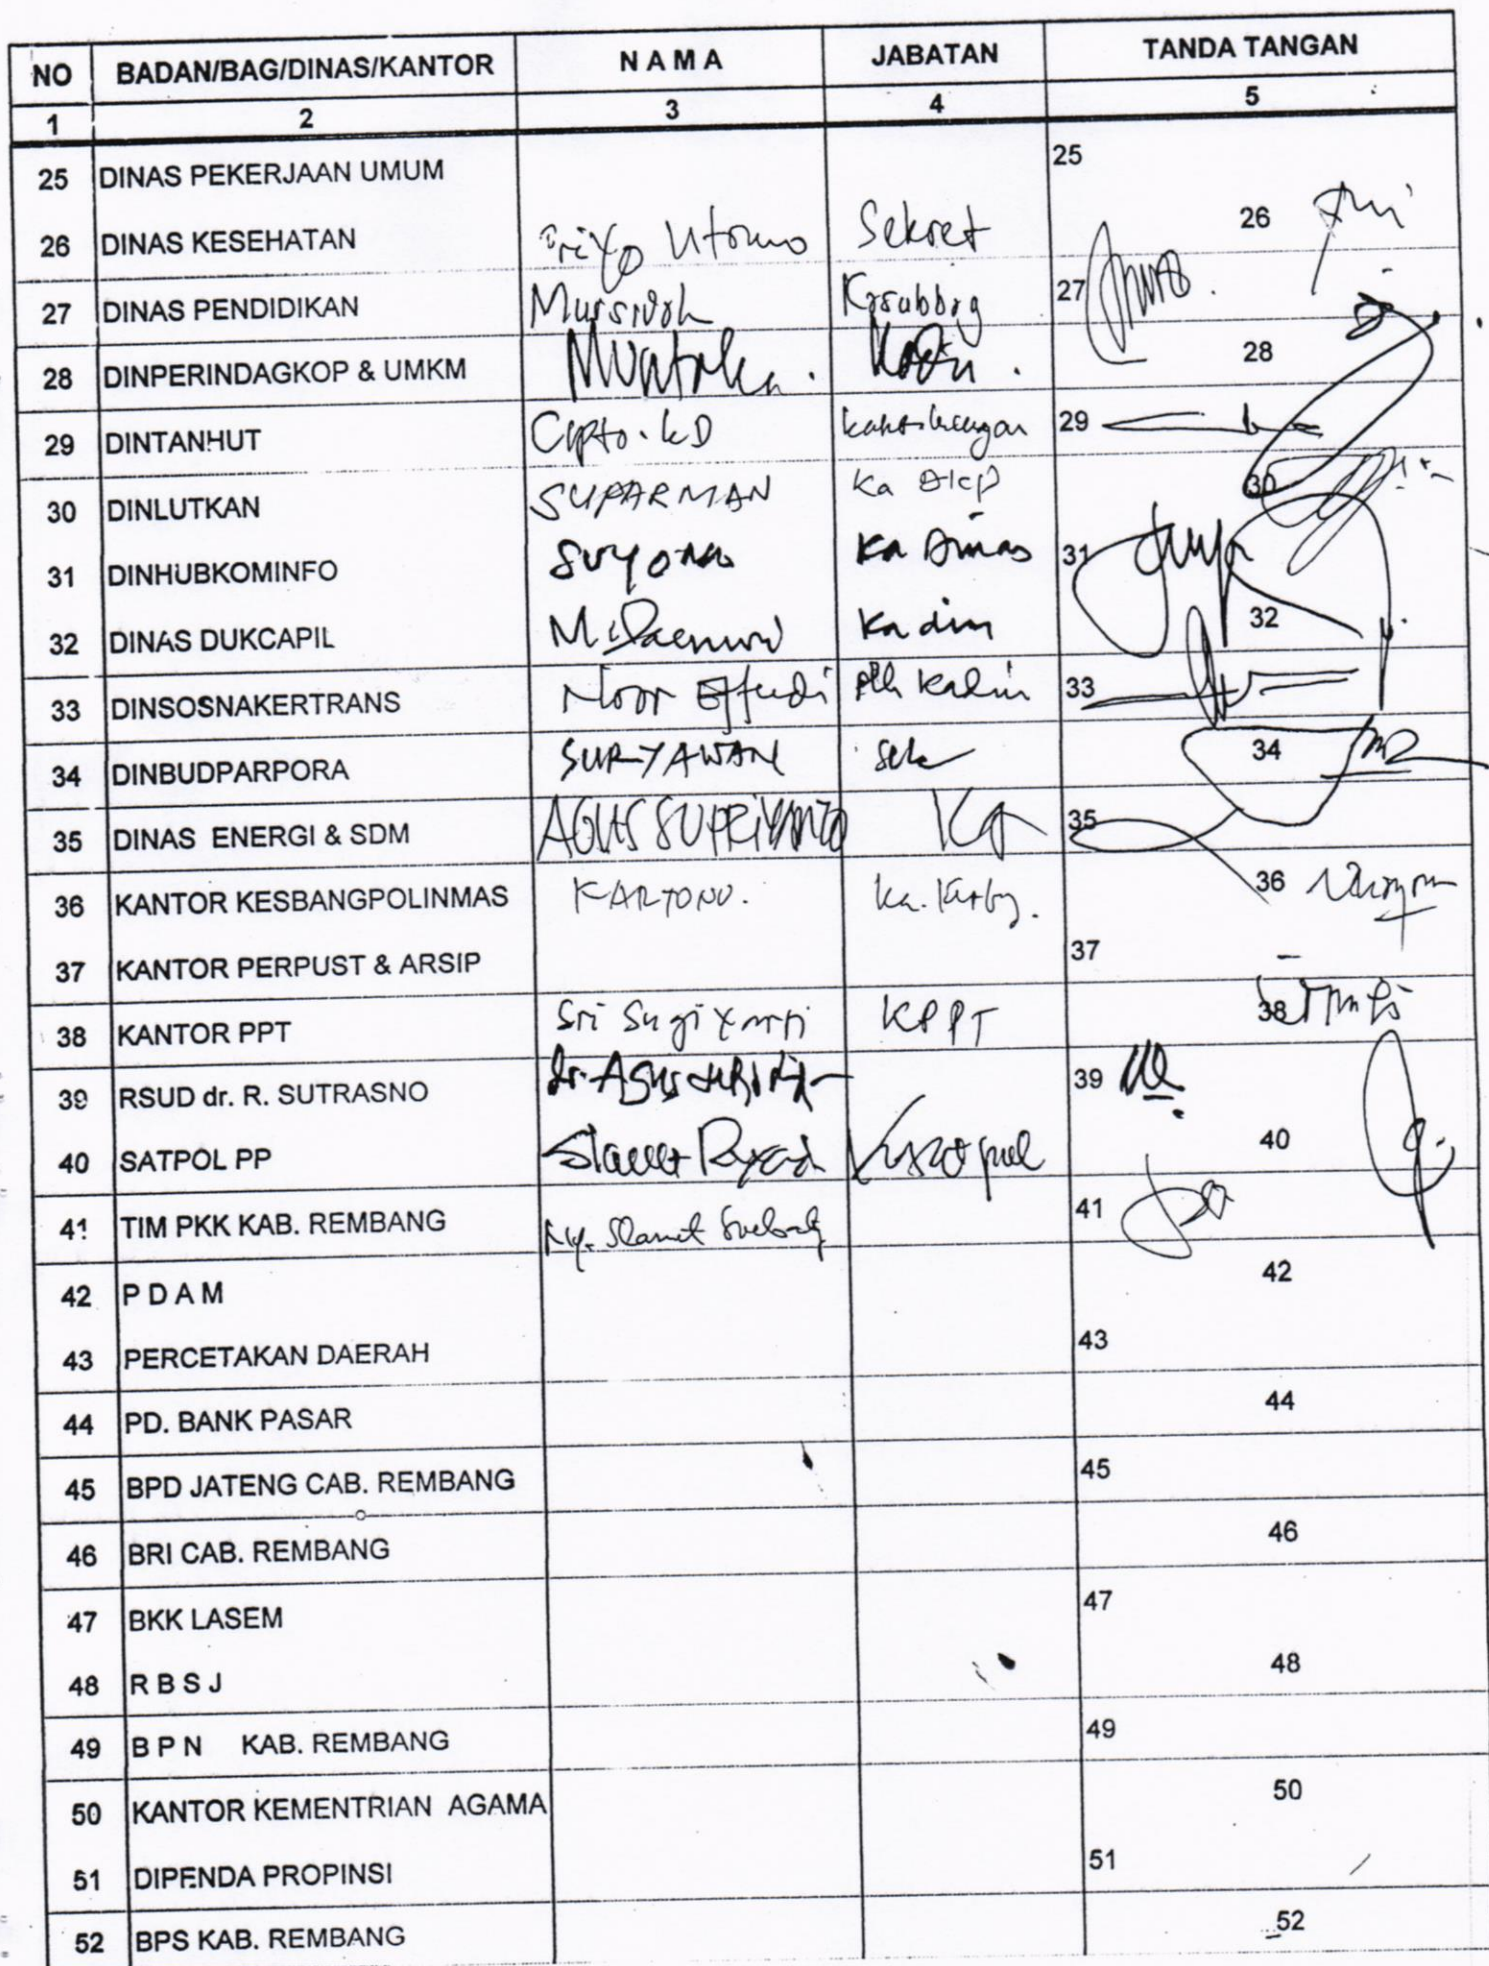 NO BADAN/BAG/DINAS/KANTOR N A M A JABATAN TANDA TANGAN
1 2 3 4 5
25 DINAS PEKERJAAN UMUM 25
26 DINAS KESEHATAN Utomo Sekret 26
27 DINAS PENDIDIKAN Kasubbag 27
28 DINPERINDAGKOP & UMKM 28
29 DINTANHUT Cipto. KD 29
30 DINLUTKAN SUPARMAN Ka 30
31 DINHUBKOMINFO Suyono Ka Dinas 31
32 DINAS DUKCAPIL Kadin 32
33 DINSOSNAKERTRANS Noor Effendi Plh Kadin 33
34 DINBUDPARPORA SURYAWAN Sek 34
35 DINAS ENERGI & SDM AGUS SUPRIYANTO Ka 35
36 KANTOR KESBANGPOLINMAS KARTONO. Ka. 36
37 KANTOR PERPUST & ARSIP 37
38 KANTOR PPT Sri Sugiyanti KPPT 38
39 RSUD dr. R. SUTRASNO dr. Agus 39
40 SATPOL PP Slamet 40
41 TIM PKK KAB. REMBANG Ny. Slamet 41
42 P D A M 42
43 PERCETAKAN DAERAH 43
44 PD. BANK PASAR 44
45 BPD JATENG CAB. REMBANG 45
46 BRI CAB. REMBANG 46
47 BKK LASEM 47
48 R B S J 48
49 B P N KAB. REMBANG 49
50 KANTOR KEMENTRIAN AGAMA 50
51 DIPENDA PROPINSI 51
52 BPS KAB. REMBANG 52